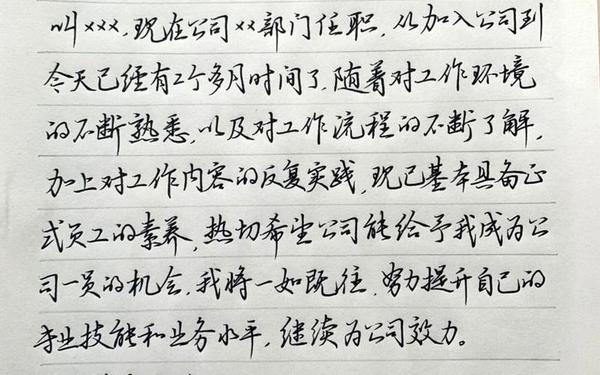 叫×××,现在公司××部门任职,从加入公司到
今天已经有2个多月时间了,随着对工作环境
的不断熟悉,以及对工作流程的不断了解,
加上对工作内容的反复实践,现已基本具备正
式员工的素养,热切希望公司能给予我成为公
司一员的机会,我将一如既往,努力提升自己的
专业技能和业务水平,继续为公司效力。